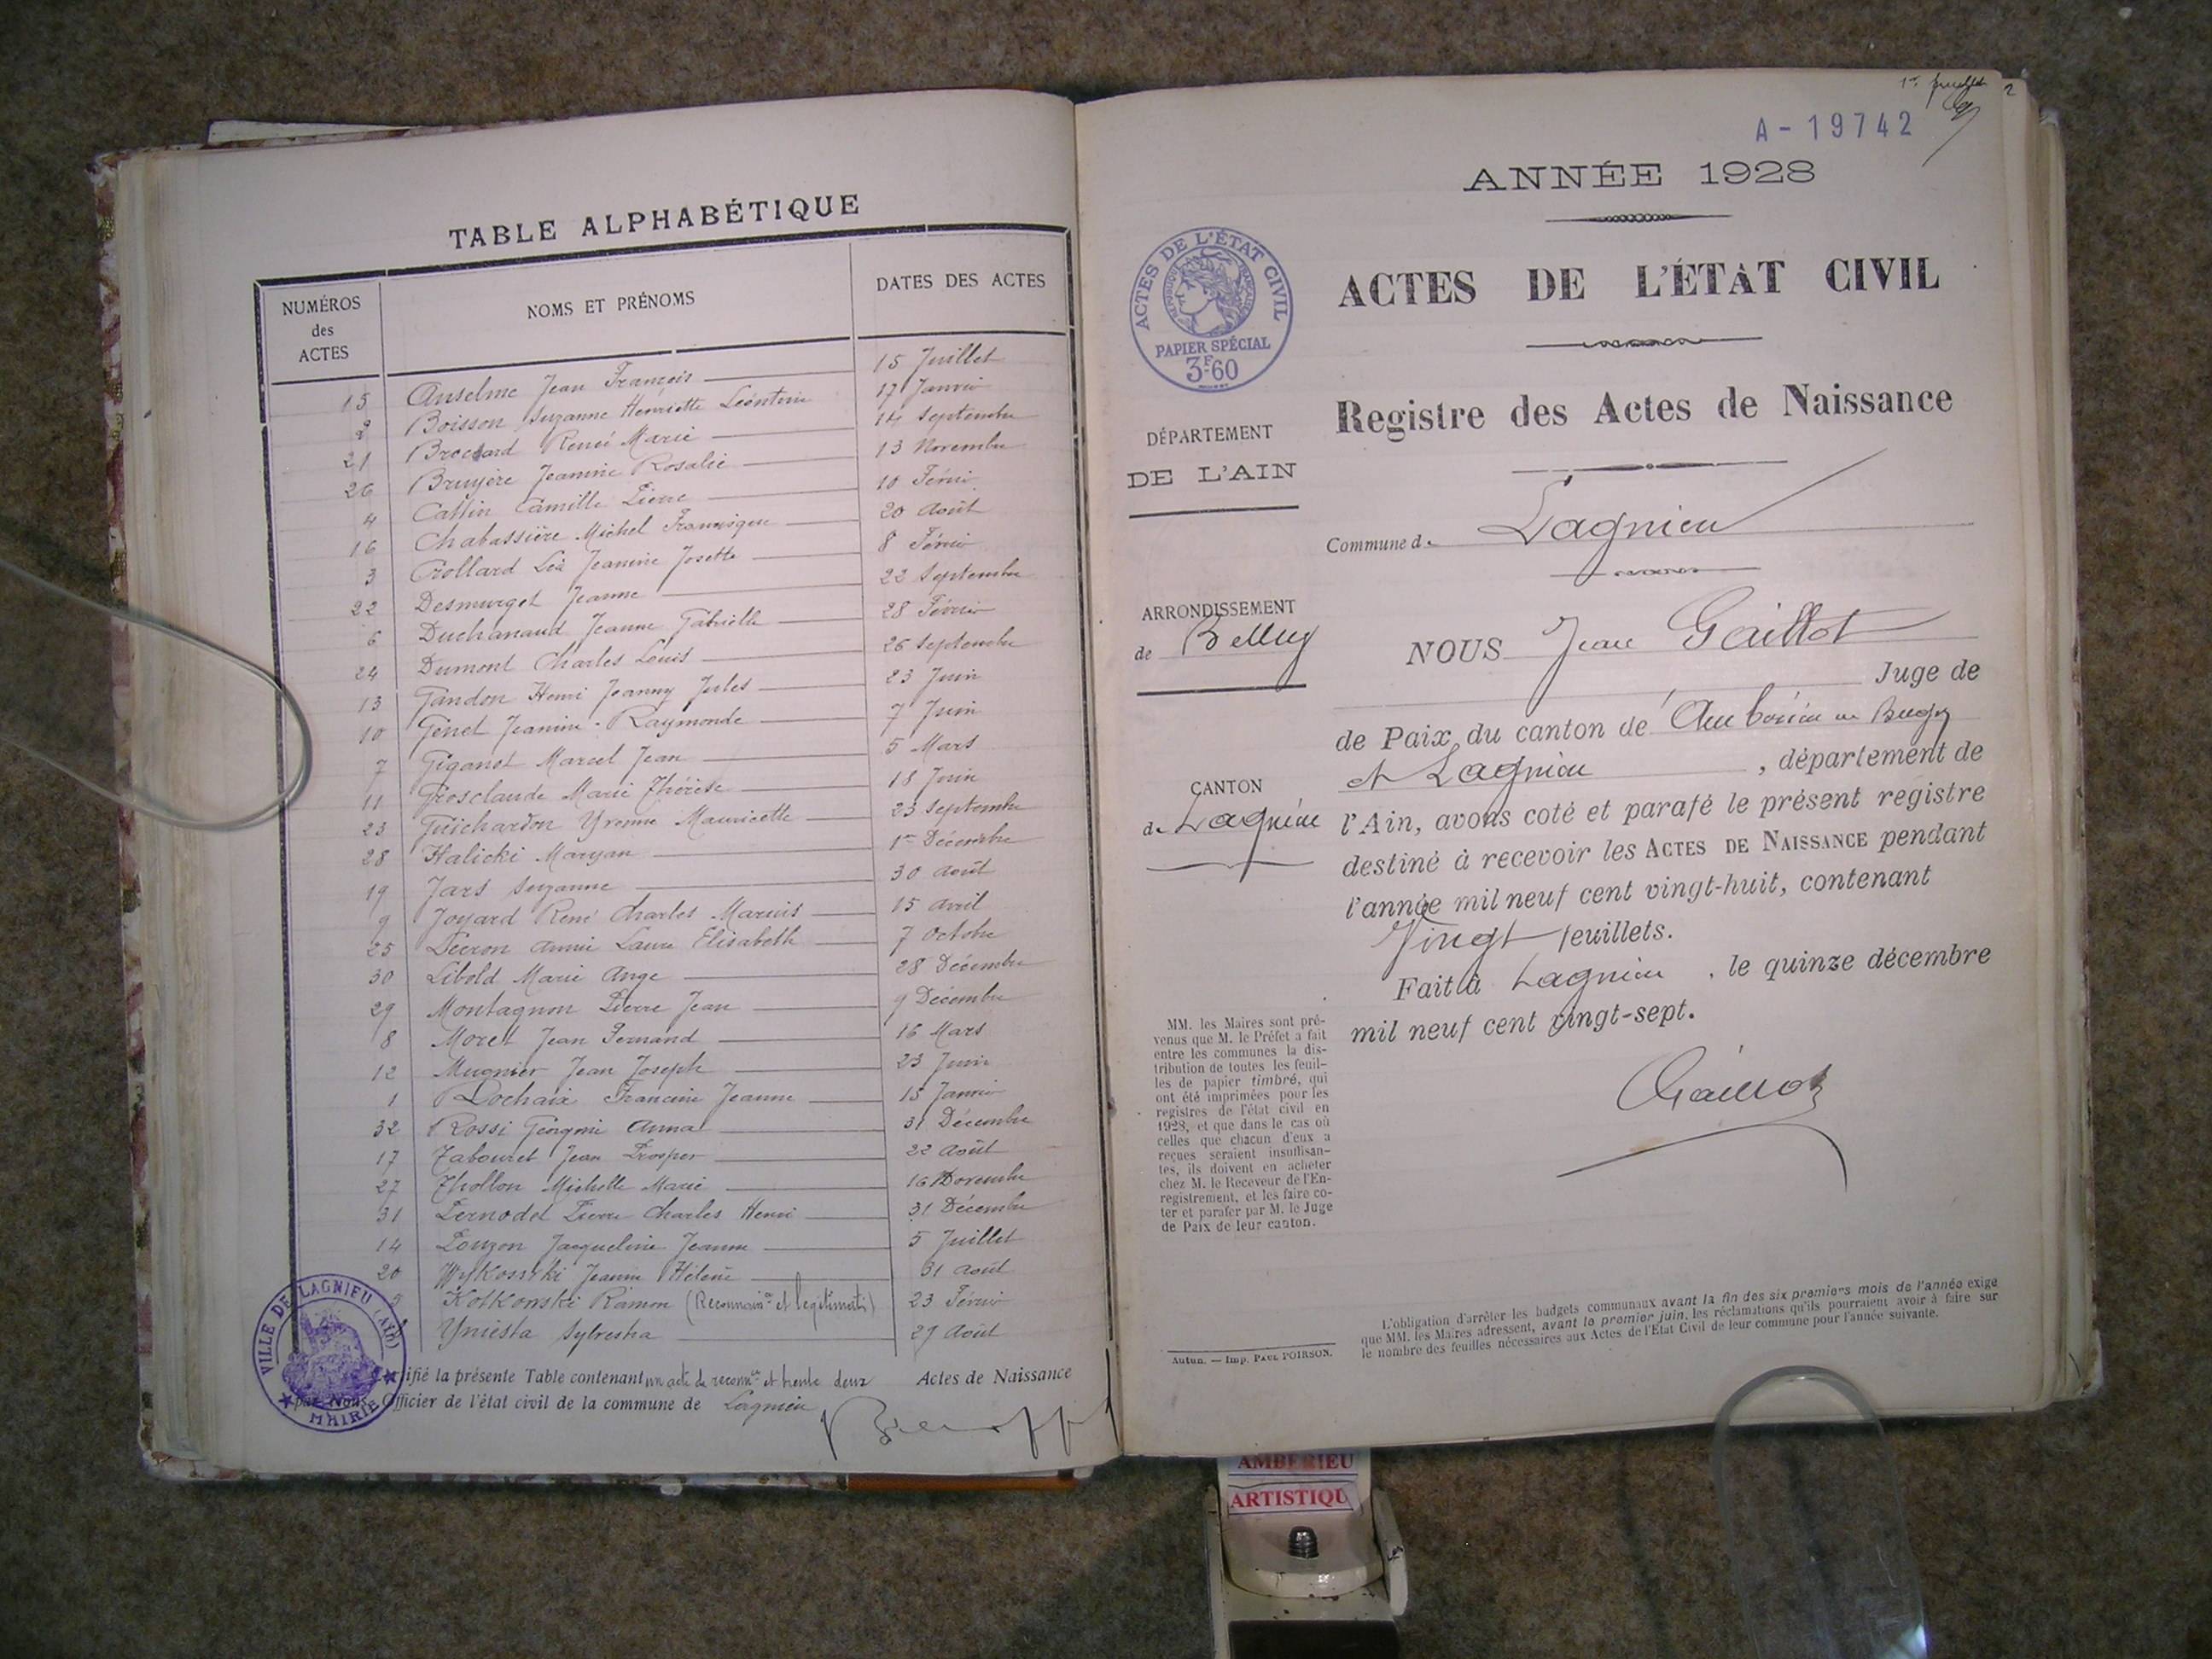 TABLE ALPHABÉTIQUE
NUMÉROS des ACTES
NOMS ET PRÉNOMS
DATES DES ACTES
15 Anselme Jean François 15 Juillet
2 Boisson Suzanne Henriette Léontine 17 Janvier
21 Brochard Renée Marie 14 Septembre
26 Bruyère Jeanine Rosalie 13 Novembre
4 Cattin Camille Pierre 10 Février
16 Chabassière Michel Françisque 20 Août
3 Crollard Léa Jeanine Josette 8 Février
22 Desmurget Jeanne 22 Septembre
6 Duchanaud Jeanne Gabrielle 28 Février
24 Dumont Charles Louis 26 Septembre
13 Gandon Henri Jeanny Jules 23 Juin
10 Genet Jeanine Raymonde 7 Juin
7 Giganot Marcel Jean 5 Mars
11 Grosclaude Marie Thérèse 18 Juin
23 Guichardon Yvonne Mauricette 23 Septembre
28 Halicki Maryan 1er Décembre
19 Jars Suzanne 30 Août
9 Joyard René Charles Marius 15 Avril
25 Lecron Annie Laure Elisabeth 7 Octobre
30 Libold Marie Ange 28 Décembre
29 Montagnon Pierre Jean 9 Décembre
8 Moret Jean Fernand 16 Mars
12 Mugnier Jean Joseph 23 Juin
1 Rochaix Francine Jeanne 15 Janvier
32 Rossi Anna 31 Décembre
17 Tabouret Jean Prosper 22 Août
27 Thollon Michelle Marie 16 Novembre
31 Pierre Charles Henri 31 Décembre
14 Jacqueline Jeanne 5 Juillet
20 Jeanne Hélène 31 Août
Kotkowski Ramon (Reconnaince et légitimatn) 23 Février
Yniesta Sylvestra 29 Août
ifié la présente Table contenant un acte de reconnce et trente deux Actes de Naissance
par Nous Officier de l'état civil de la commune de Lagnieu
VILLE DE LAGNIEU (AIN)
MAIRIE
1er feuillet 2
A-19742
ANNÉE 1928
ACTES DE L'ÉTAT CIVIL
PAPIER SPÉCIAL
3F.60
RÉPUBLIQUE FRANÇAISE
ACTES DE L'ÉTAT CIVIL
Registre des Actes de Naissance
DÉPARTEMENT
DE L'AIN
Commune de Lagnieu
ARRONDISSEMENT
de Belley
NOUS Jean Gaillot
Juge de
de Paix du canton de Ambérieu en Bugey
et Lagnieu, département de
CANTON
de Lagnieu
l'Ain, avons coté et parafé le présent registre
destiné à recevoir les ACTES DE NAISSANCE pendant
l'année mil neuf cent vingt-huit, contenant
Vingt feuillets.
Fait à Lagnieu, le quinze décembre
mil neuf cent vingt-sept.
Gaillot
MM. les Maires sont pré-
venus que M. le Préfet a fait
entre les communes la dis-
tribution de toutes les feuil-
les de papier timbré, qui
ont été imprimées pour les
registres de l'état civil en
1928, et que dans le cas où
celles que chacun d'eux a
reçues seraient insuffisan-
tes, ils doivent en acheter
chez M. le Receveur de l'En-
registrement, et les faire co-
ter et parafer par M. le Juge
de Paix de leur canton.
L'obligation d'arrêter les budgets communaux avant la fin des six premiers mois de l'année exige
que MM. les Maires adressent, avant le premier juin, les réclamations qu'ils pourraient avoir à faire sur
le nombre des feuilles nécessaires aux Actes de l'Etat Civil de leur commune pour l'année suivante.
Autun. — Imp. PAUL POIRSON.
AMBERIEU
ARTISTIQU